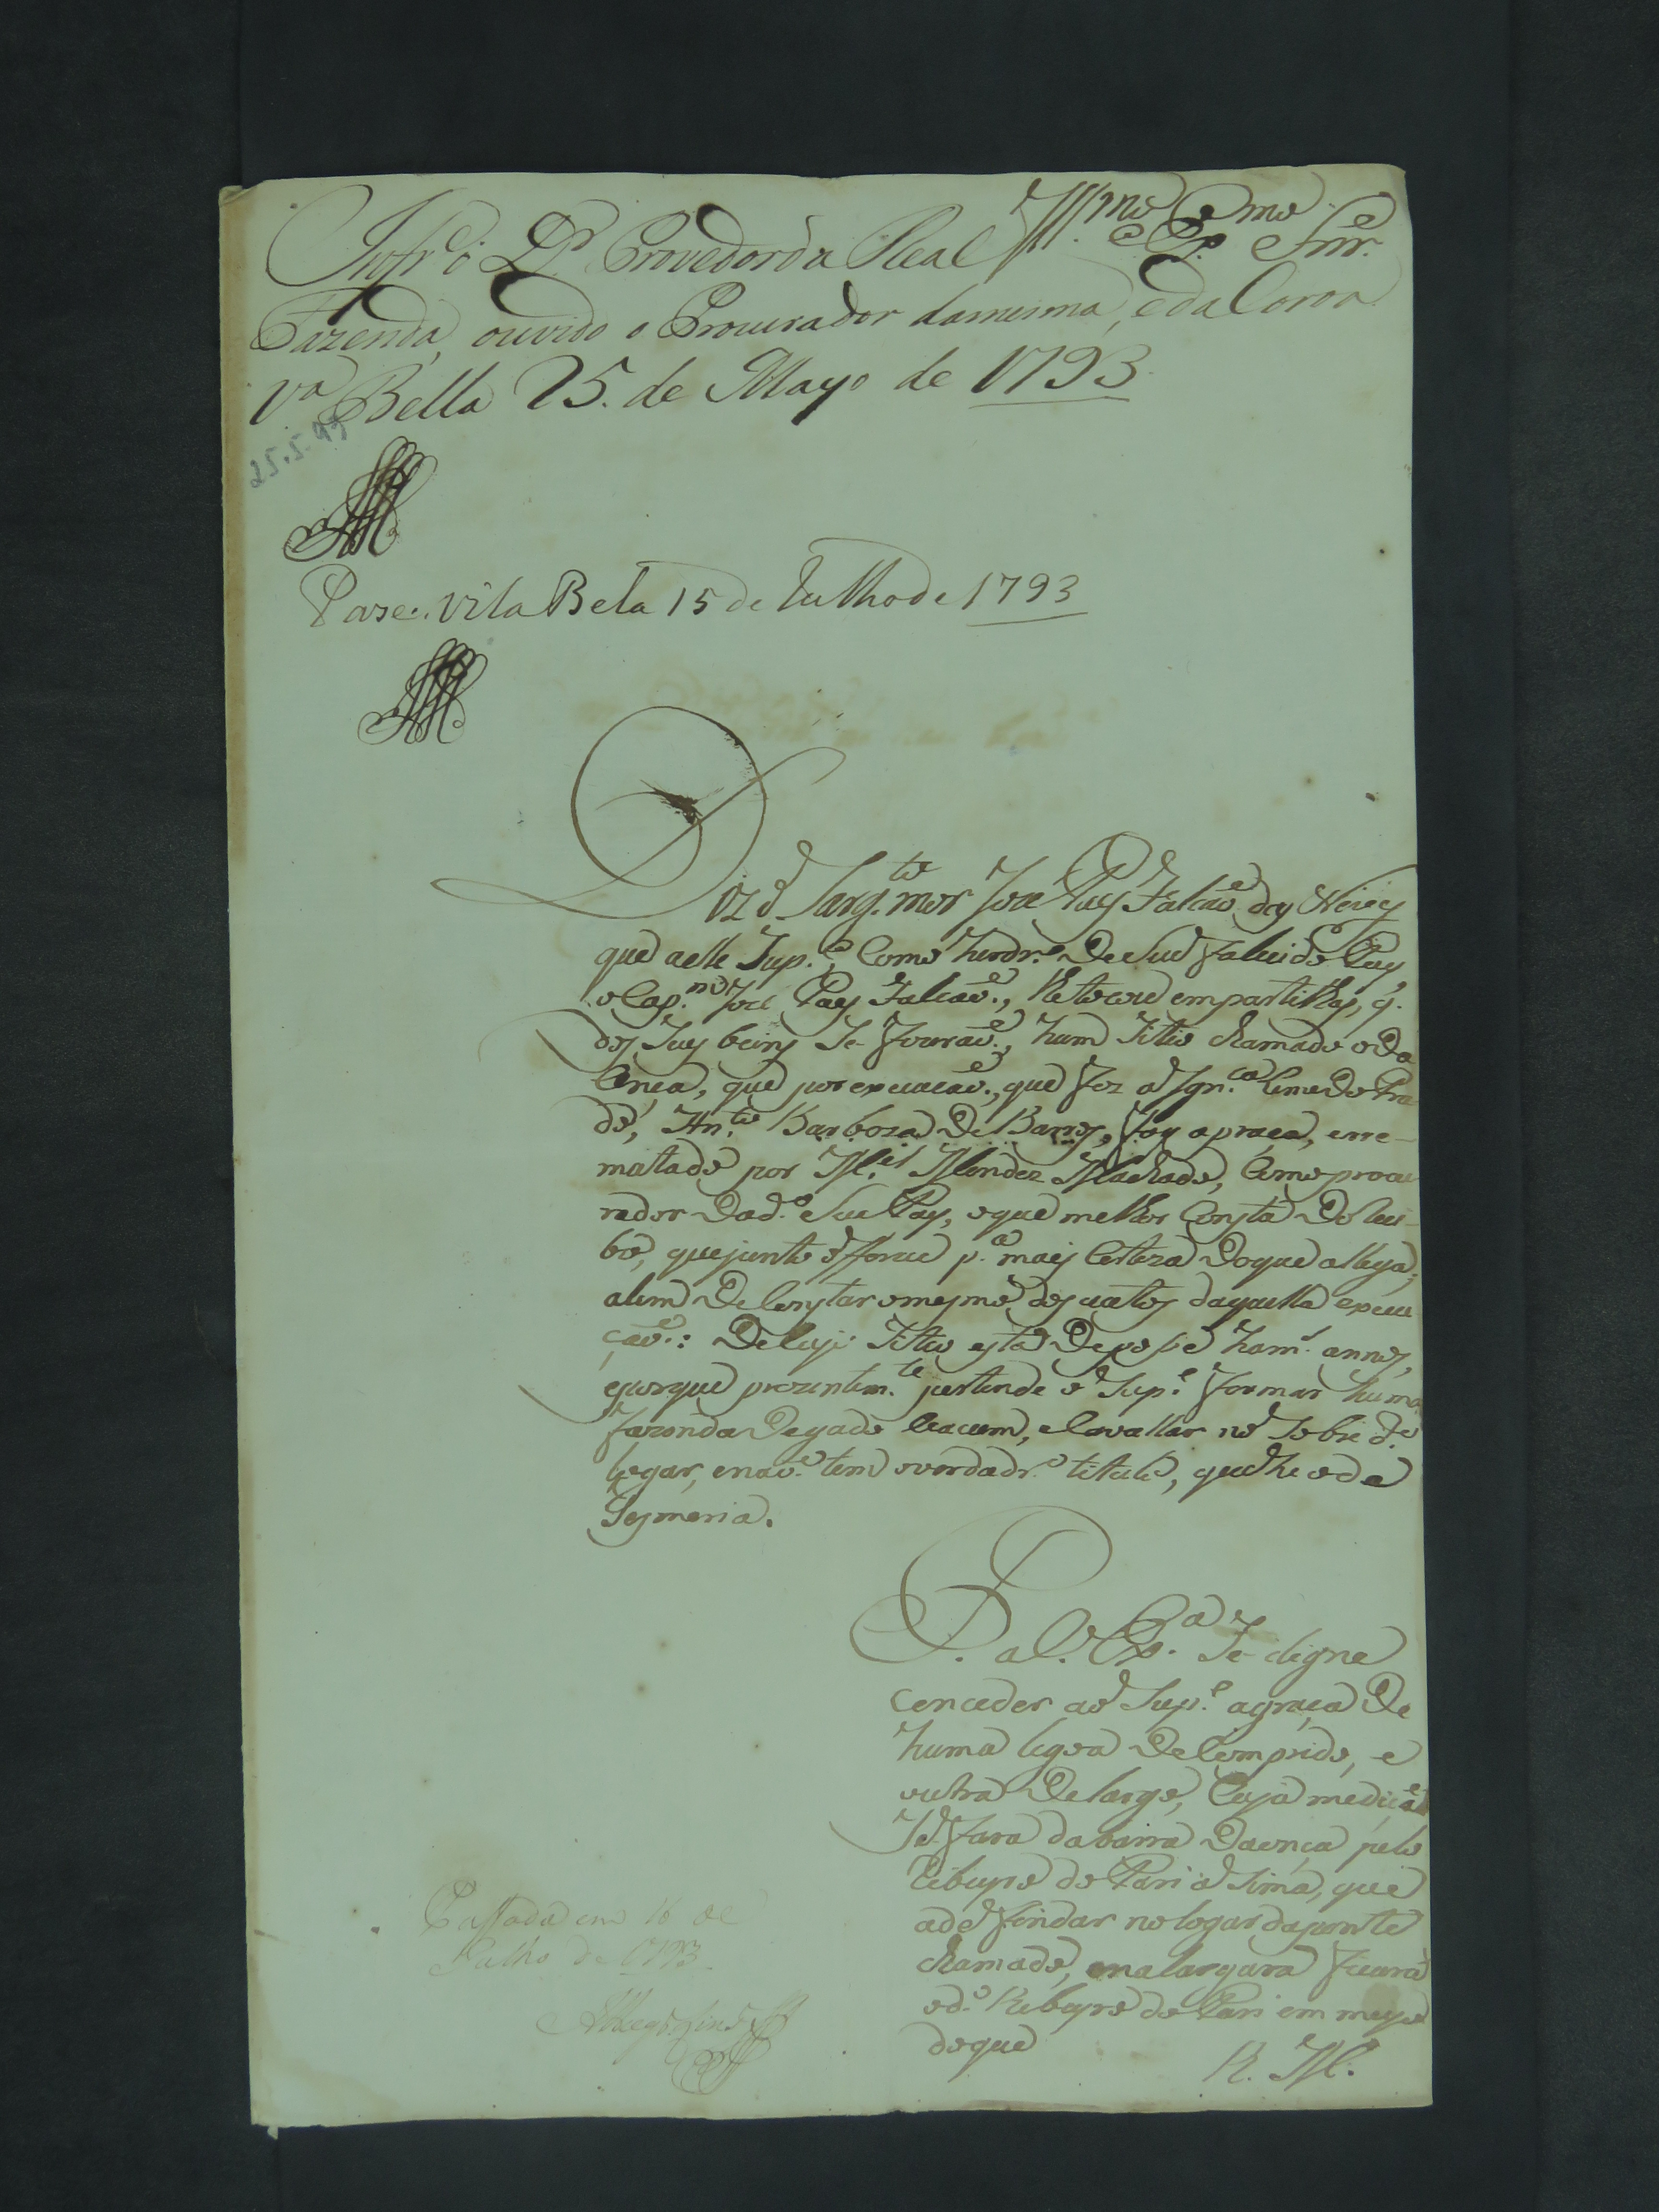 Illmo. e Exmo. Snr.
Infre. o Dr. Provedor da Real
Fazenda, ouvido o Procurador da mesma, e da Coroa
Va. Bella 25. de Mayo de 1793.
25.5.93
Pase. Vila Bela 15 de Julho de 1793
Diz o Sarg.to mor Joze Paes Falcaõ das Neves
que a elle Sup.e, como herdr.o de seu falecido Pay
o Cap.m Joze Paes Falcaõ, lhe tocou em partilhas, q.
dos seus beins se fizeraõ, hum Sitio chamado o da
Onça, que por execuçaõ, que fez a Ign.ca Leme do Pra-
do, An.to Barboza de Barros, foy a praça, e rre-
matado por M.el Mendez Machado, como procu-
rador do d.o seu Pay, o que melhor consta do reci-
bo, que junto offerece p.a mais certeza do que allega,
alem de constar o mesmo dos autos daquella execu-
çaõ: De cujo Sitio está de posse ham. annos,
e porque prezentem.te pertende o Sup.e formar huma
fazenda de gado vacum, e cavallar no sobre d.o
lugar, e naõ tem o verdadr.o titulo, que he o de
Sesmaria.
P. a V. Ex.a se digne
conceder ao Sup.e a graça de
huma legoa de comprido, e
outra de largo, cuja mediçaõ
se fará da barra da onça pelo
Ribeyro do Pari a sima, que
a de findar no logar da ponte
chamado, e na largura ficará
o d.o Ribeyro do Pari em meyo
do que
R. M.
Passada em 16 de
Julho de 1793.